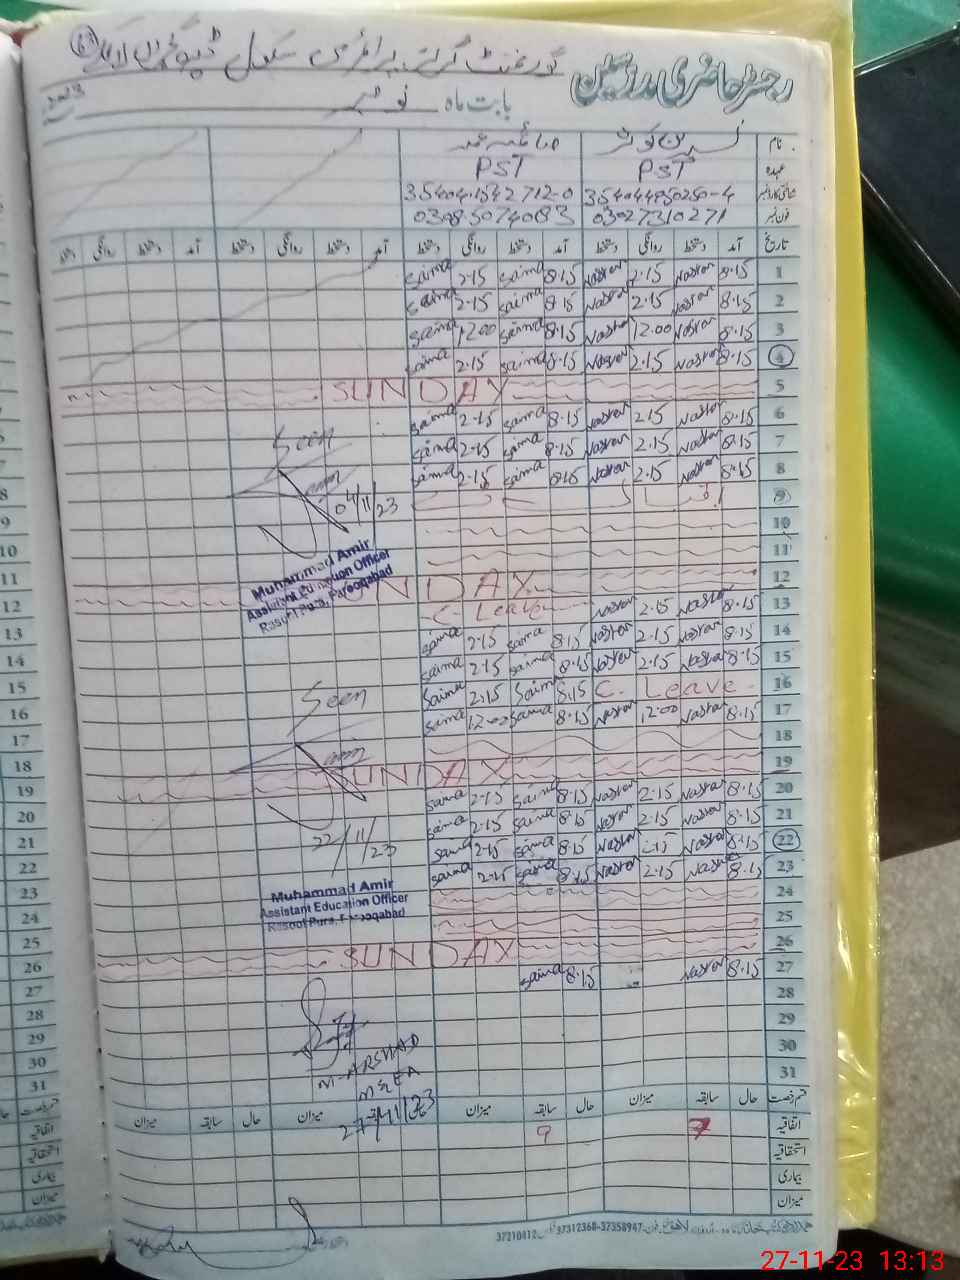 رجسٹر حاضری مدرسین
گورنمنٹ گرلز پرائمری سکول
بابت ماہ نومبر 2023
نام
عہدہ PST PST
35404-1542712-0
فون نمبر 03027310271 03085074083
تاریخ آمد دستخط روانگی دستخط آمد دستخط روانگی دستخط آمد دستخط روانگی دستخط آمد دستخط روانگی دستخط
1 8.15 Nasran 2.15 Nasran 8.15 Saima 2.15 Saima
2 8.15 Nasran 2.15 Nasran 8.15 Saima 2.15 Saima
3 8.15 Nasran 12.00 Nasran 8.15 Saima 12.00 Saima
4 8.15 Nasran 2.15 Nasran 8.15 Saima 2.15 Saima
5 SUNDAY
6 8.15 Nasran 2.15 Nasran 8.15 Saima 2.15 Saima
7 8.15 Nasran 2.15 Nasran 8.15 Saima 2.15 Saima
8 8.15 Nasran 2.15 Nasran 8.15 Saima 2.15 Saima
9
10
11
12 SUNDAY
13 8.15 Nasran 2.15 Nasran C. Leave
14 8.15 Nasran 2.15 Nasran 8.15 Saima 2.15 Saima
15 8.15 Nasran 2.15 Nasran 8.15 Saima 2.15 Saima
16 C. Leave 8.15 Saima 2.15 Saima
17 8.15 Nasran 12.00 Nasran 8.15 Saima 12.00 Saima
18
19 SUNDAY
20 8.15 Nasran 2.15 Nasran 8.15 Saima 2.15 Saima
21 8.15 Nasran 2.15 Nasran 8.15 Saima 2.15 Saima
22 8.15 Nasran 2.15 Nasran 8.15 Saima 2.15 Saima
23 8.15 Nasran 2.15 Nasran 8.15 Saima 2.15 Saima
24
25
26 SUNDAY
27 8.15 Nasran 8.15 Saima
28
29
30
31
Seen
04/11/23
Muhammad Amir
Assistant Education Officer
Rasool Pura, Farooqabad
Seen
22/11/23
Muhammad Amir
Assistant Education Officer
Rasool Pura, Farooqabad
M. ARSHAD
MEA
27/11/23
قسم رخصت حال سابقہ میزان حال سابقہ میزان حال سابقہ میزان حال سابقہ میزان
اتفاقیہ 7 9
استحقاقیہ
بیماری
میزان
37210412 37312368-37358947
8
9
10
11
12
13
14
15
16
17
18
19
20
21
22
23
24
25
26
27
28
29
30
31
27-11-23 13:13